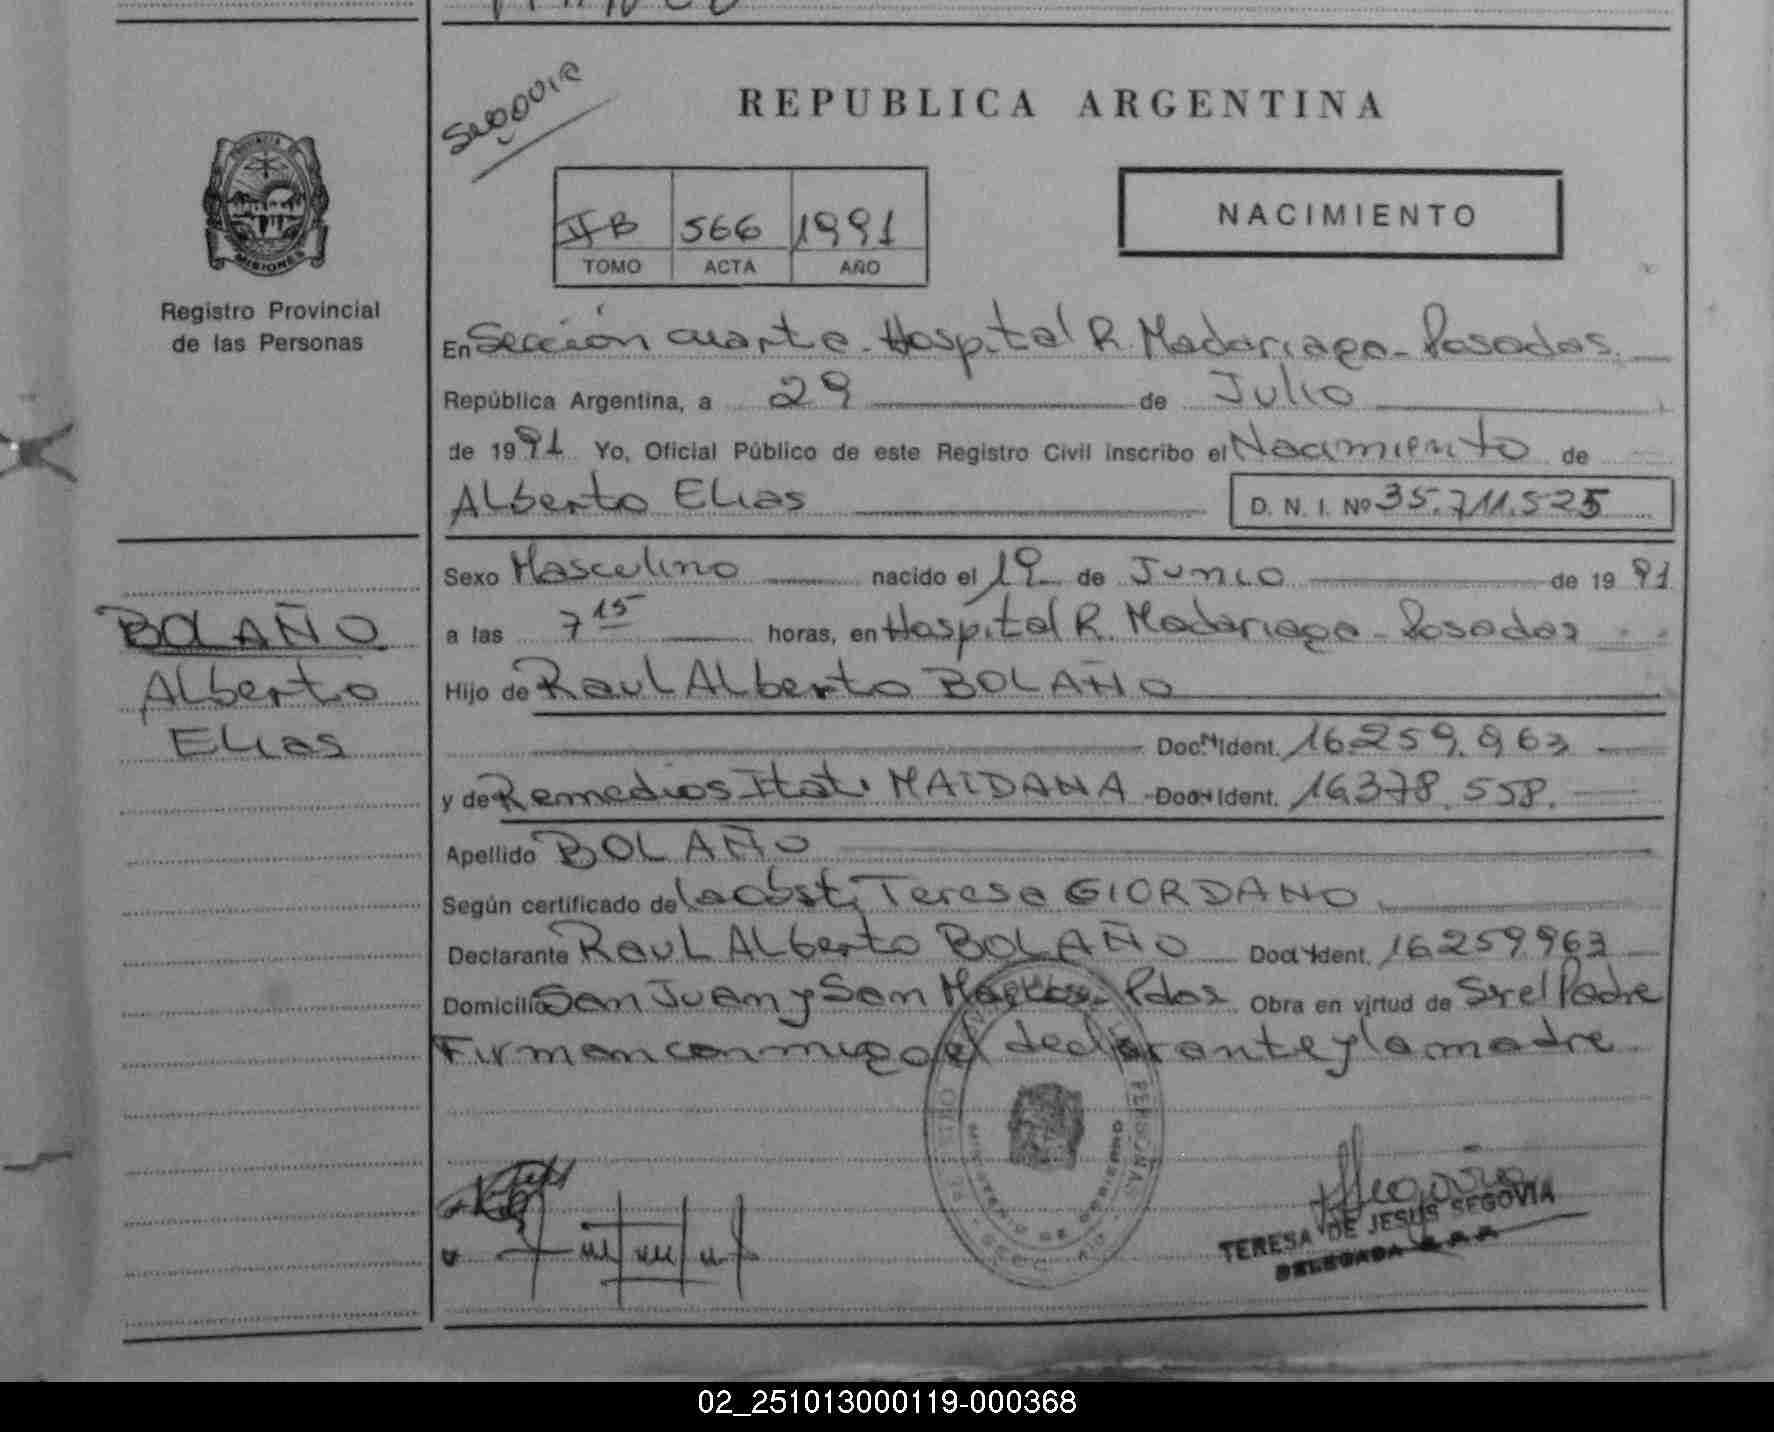 Segovia
REPUBLICA ARGENTINA
PROVINCIA DE
MISIONES
Registro Provincial
de las Personas
566 1991
TOMO ACTA AÑO
NACIMIENTO
En Sección cuarta - Hospital R. Madariaga - Posadas.
República Argentina, a 29 de Julio
de 1991 Yo, Oficial Público de este Registro Civil inscribo el Nacimiento de
Alberto Elias D. N. I. Nº 35.711.525
Sexo Masculino nacido el 19 de Junio de 1991
a las 7 15 horas, en Hospital R. Madariaga - Posadas
Hijo de Raul Alberto BOLAÑO
Doc. Ident. 16.259.963
y de Remedios Itati MAIDANA - Doc. Ident. 16.378.558.
Apellido BOLAÑO
Según certificado de la obst. Teresa GIORDANO
Declarante Raul Alberto BOLAÑO Doc. Ident. 16259963
Domicilio San Juan y San Marcos - Pdas. Obra en virtud de Ser el Padre
Firman conmigo el declarante y la madre
BOLAÑO
Alberto
Elias
TERESA DE JESUS SEGOVIA
DELEGADA R. P. P.
02_251013000119-000368